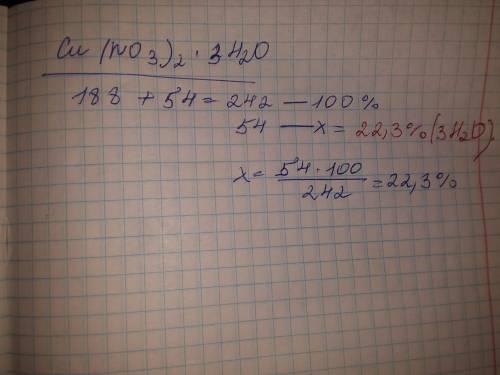 Cu(NO₃)₂ · 3H₂O
188 + 54 = 242 — 100%
54 — x = 22,3% (3H₂O)
x = 54 · 100 / 242 = 22,3%